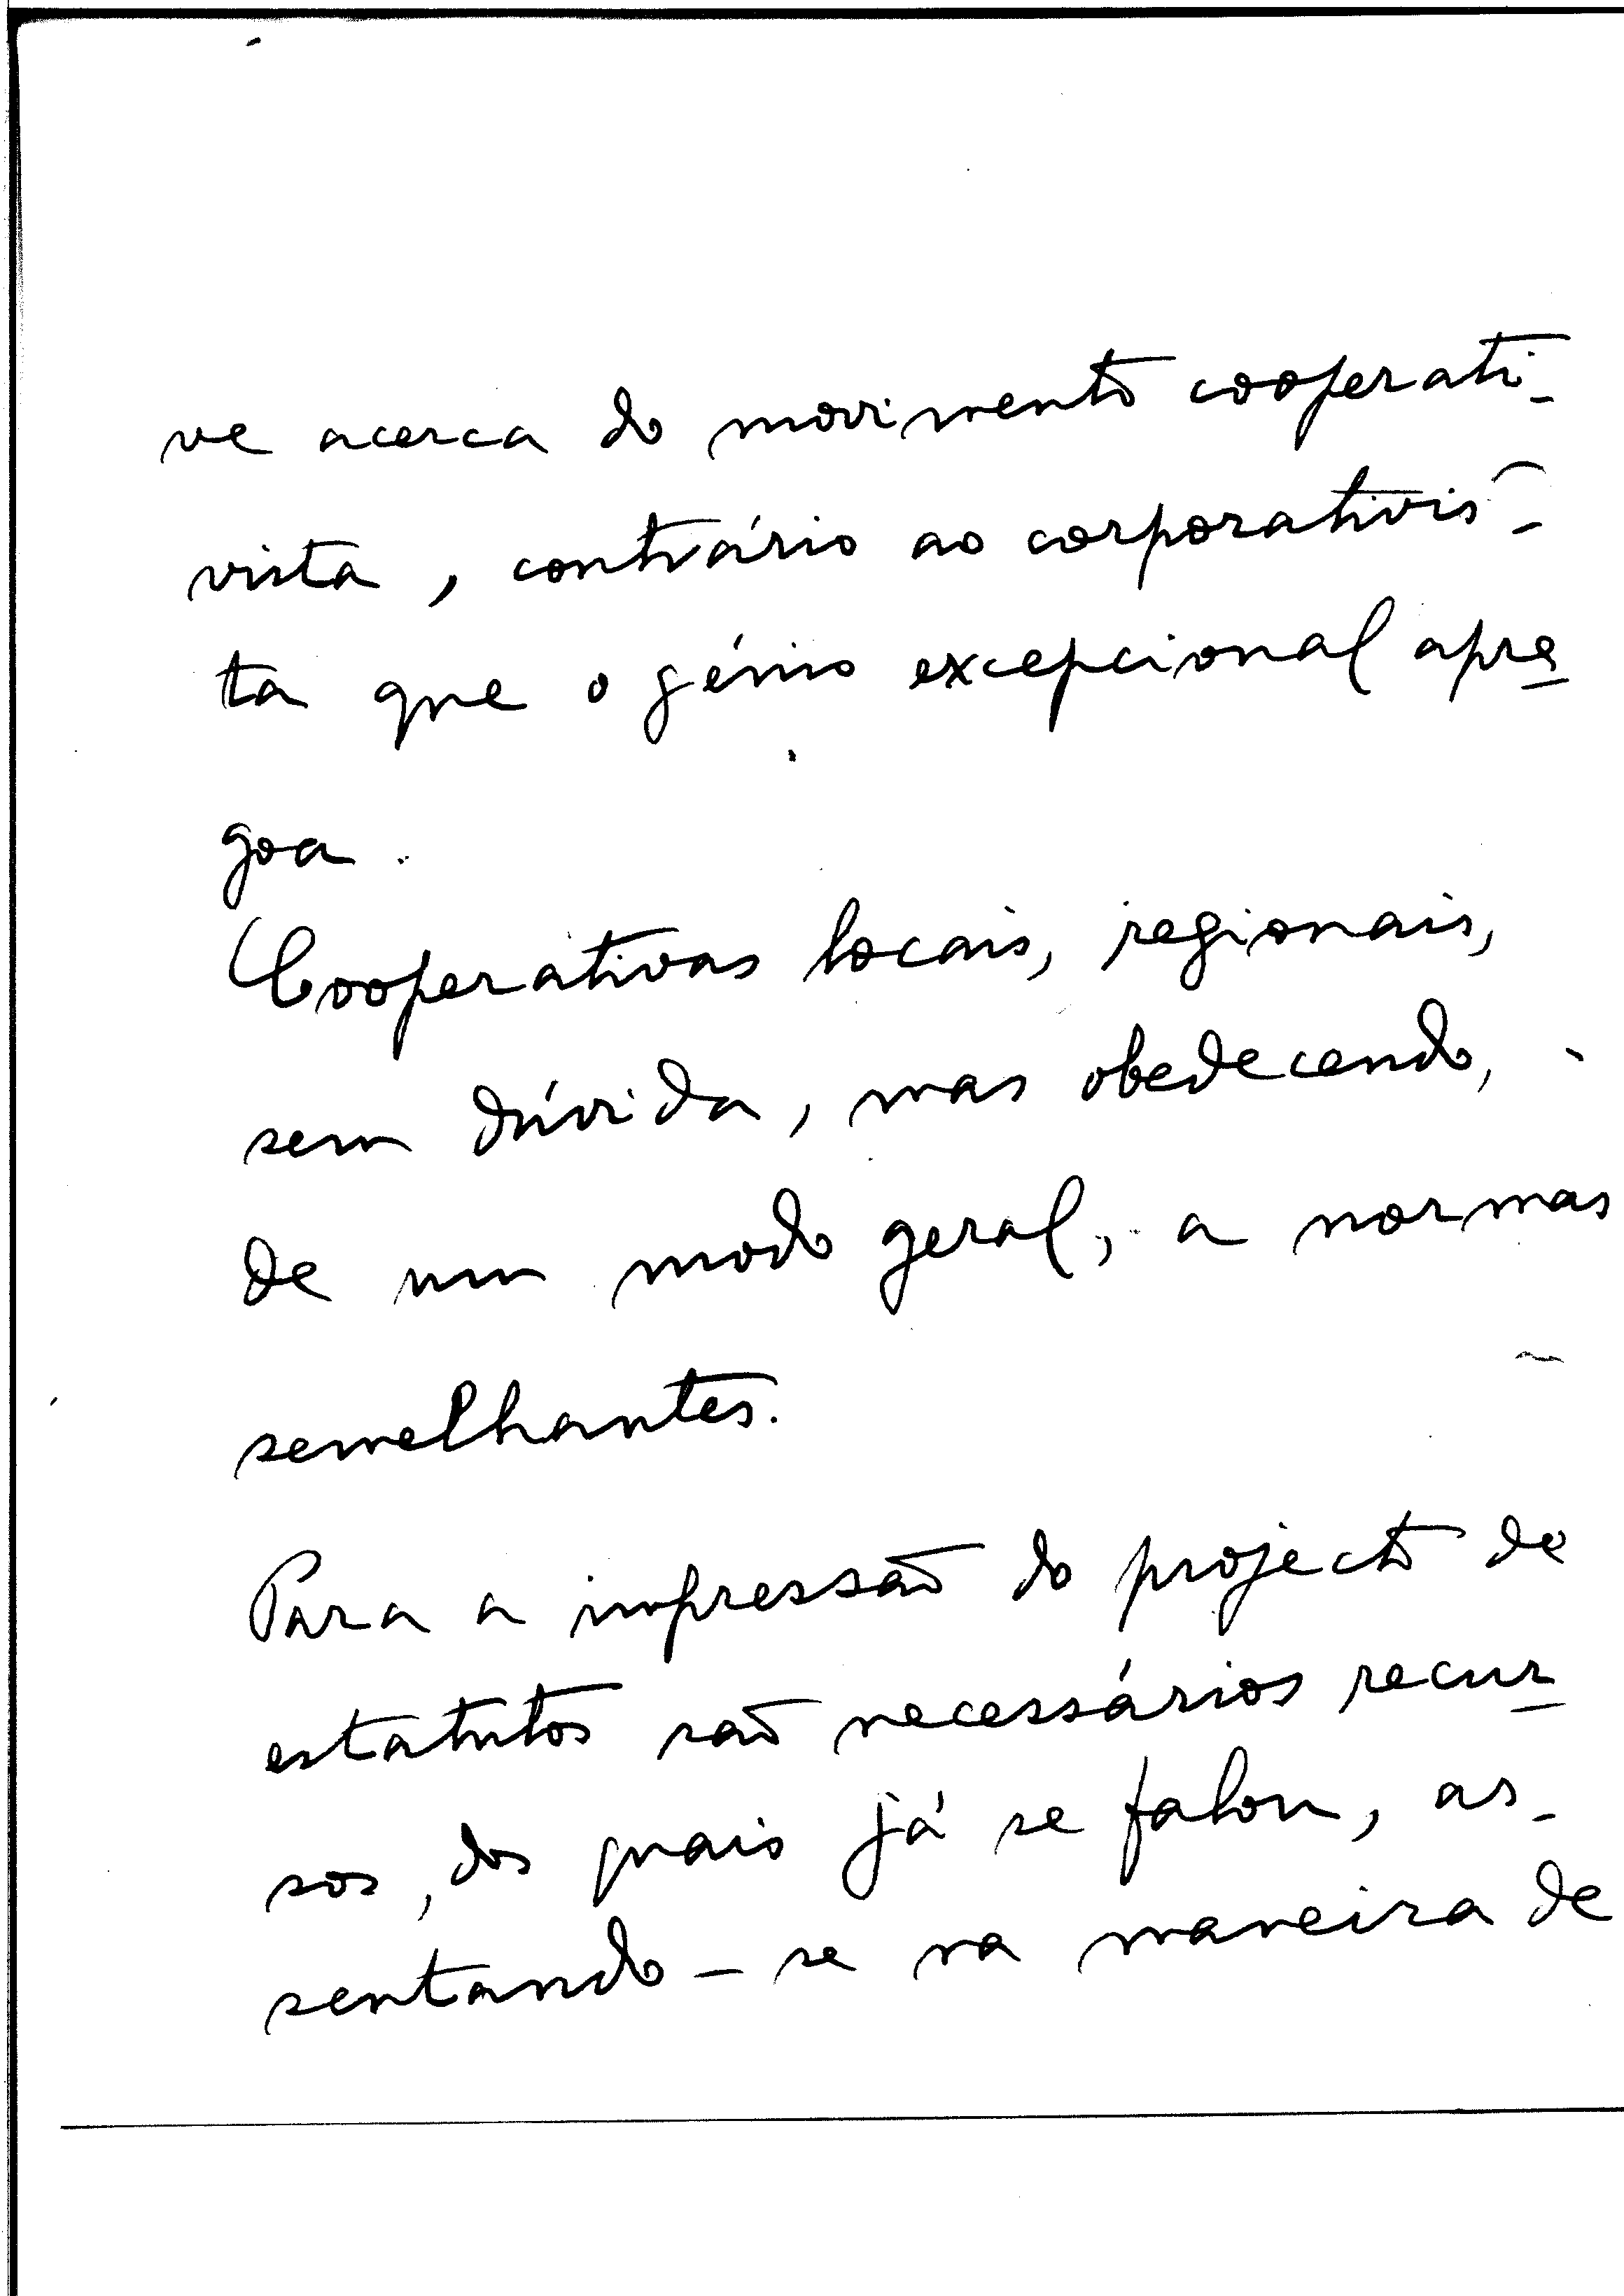 ve acerca do movimento cooperati-
vista, contrário ao corporativis-
ta que o génio excepcional apre
goa.
Cooperativas locais, regionais,
sem dúvida, mas obedecendo,
de um modo geral, a normas
semelhantes.
Para a impressão do projecto de
estatutos são necessários recur
sos, dos quais já se falou, as-
sentando-se na maneira de